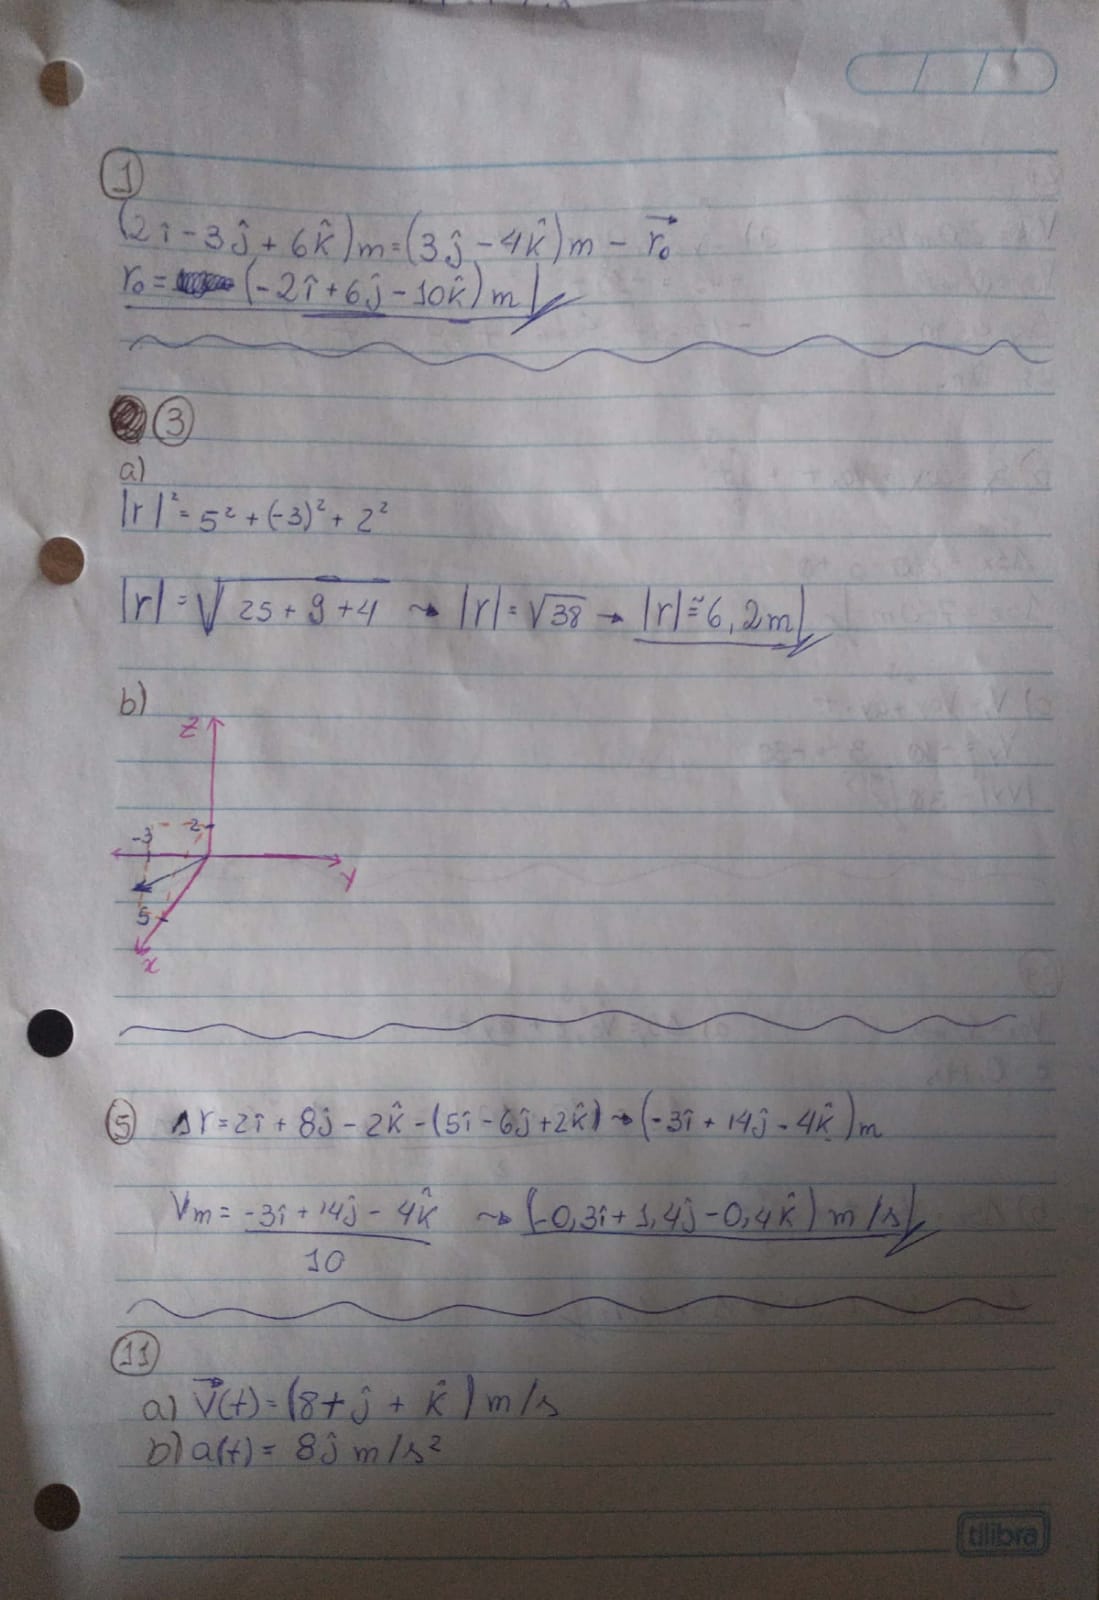 1
(2î - 3ĵ + 6k̂)m = (3ĵ - 4k̂)m - r⃗₀
r₀ = (-2î + 6ĵ - 10k̂)m
3
a)
|r|² = 5² + (-3)² + 2²
|r| = √25 + 9 + 4 ⇝ |r| = √38 → |r| ≅ 6,2m
b)
z
-3 2
y
5
x
5 Δr = 2î + 8ĵ - 2k̂ - (5î - 6ĵ + 2k̂) ⇝ (-3î + 14ĵ - 4k̂)m
Vm = -3î + 14ĵ - 4k̂ ⇝ (-0,3î + 1,4ĵ - 0,4k̂) m/s
10
11
a) V⃗(t) = (8tĵ + k̂) m/s
b) a(t) = 8ĵ m/s²
tilibra